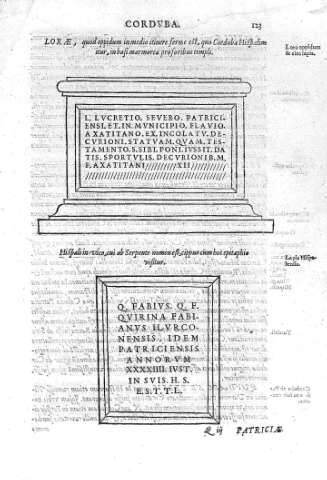 CORDVBA.
123
LORÆ, quod oppidum in medio itinere ferme est, quo Corduba Hispalim
itur, in basi marmorea pro foribus templi.
L. LVCRETIO, SEVERO. PATRICI-
ENSI, ET. IN. MVNICIPIO. FLAVIO.
AXATITANO. EX. INCOLATV. DE-
CVRIONI. STATVAM. QVAM. TES-
TAMENTO. S. SIBI. PONI. IVSSIT. DA
TIS. SPORTVLIS. DECVRIONIB. M.
F. AXATITANI XII
Hispali in vico, cui ab Serpente nomen est, cippus cum hoc epitaphio
visitur.
Q. FABIVS. Q. F.
QVIRINA FABI-
ANVS ILVRCO-
NENSIS. IDEM
PATRICIENSIS
ANNORVM
XXXXIIII. IVST.
IN SVIS. H. S.
E. S. T. T. L.
Q iij
PATRICIÆ